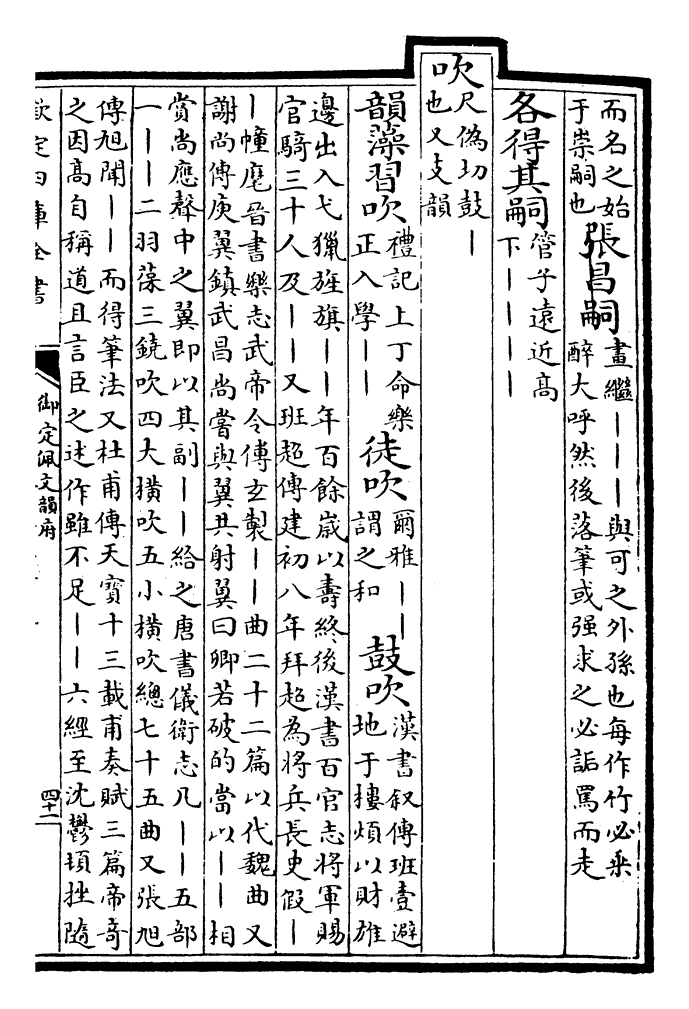 而名之始
于崇嗣也
張昌嗣
畫繼｜｜｜與可之外孫也每作竹必乘
醉大呼然後落筆或强求之必詬罵而走
各得其嗣
管子遠近髙
下｜｜｜｜
吹
尺偽切鼓｜
也又支韻
韻藻習吹
禮記上丁命樂
正入學｜｜
徒吹
爾雅｜｜
謂之和
鼓吹
漢書叙傳班壹避
地于摟煩以財雄
邊出入弋獵旌旗｜｜年百餘嵗以壽終後漢書百官志將軍賜
官騎三十人及｜｜又班超傳建初八年拜超為將兵長史假｜
｜幢麾晉書樂志武帝令傅玄製｜｜曲二十二篇以代魏曲又
謝尚傳庾翼鎮武昌尚嘗與翼共射翼曰卿若破的當以｜｜相
賞尚應聲中之翼即以其副｜｜給之唐書儀衛志凡｜｜五部
一｜｜二羽葆三鐃吹四大橫吹五小橫吹總七十五曲又張旭
傳旭聞｜｜而得筆法又杜甫傳天寶十三載甫奏賦三篇帝奇
之因髙自稱道且言臣之述作雖不足｜｜六經至沈鬱頓挫隨
欽定四庫全書
御定佩文韻府
四十二